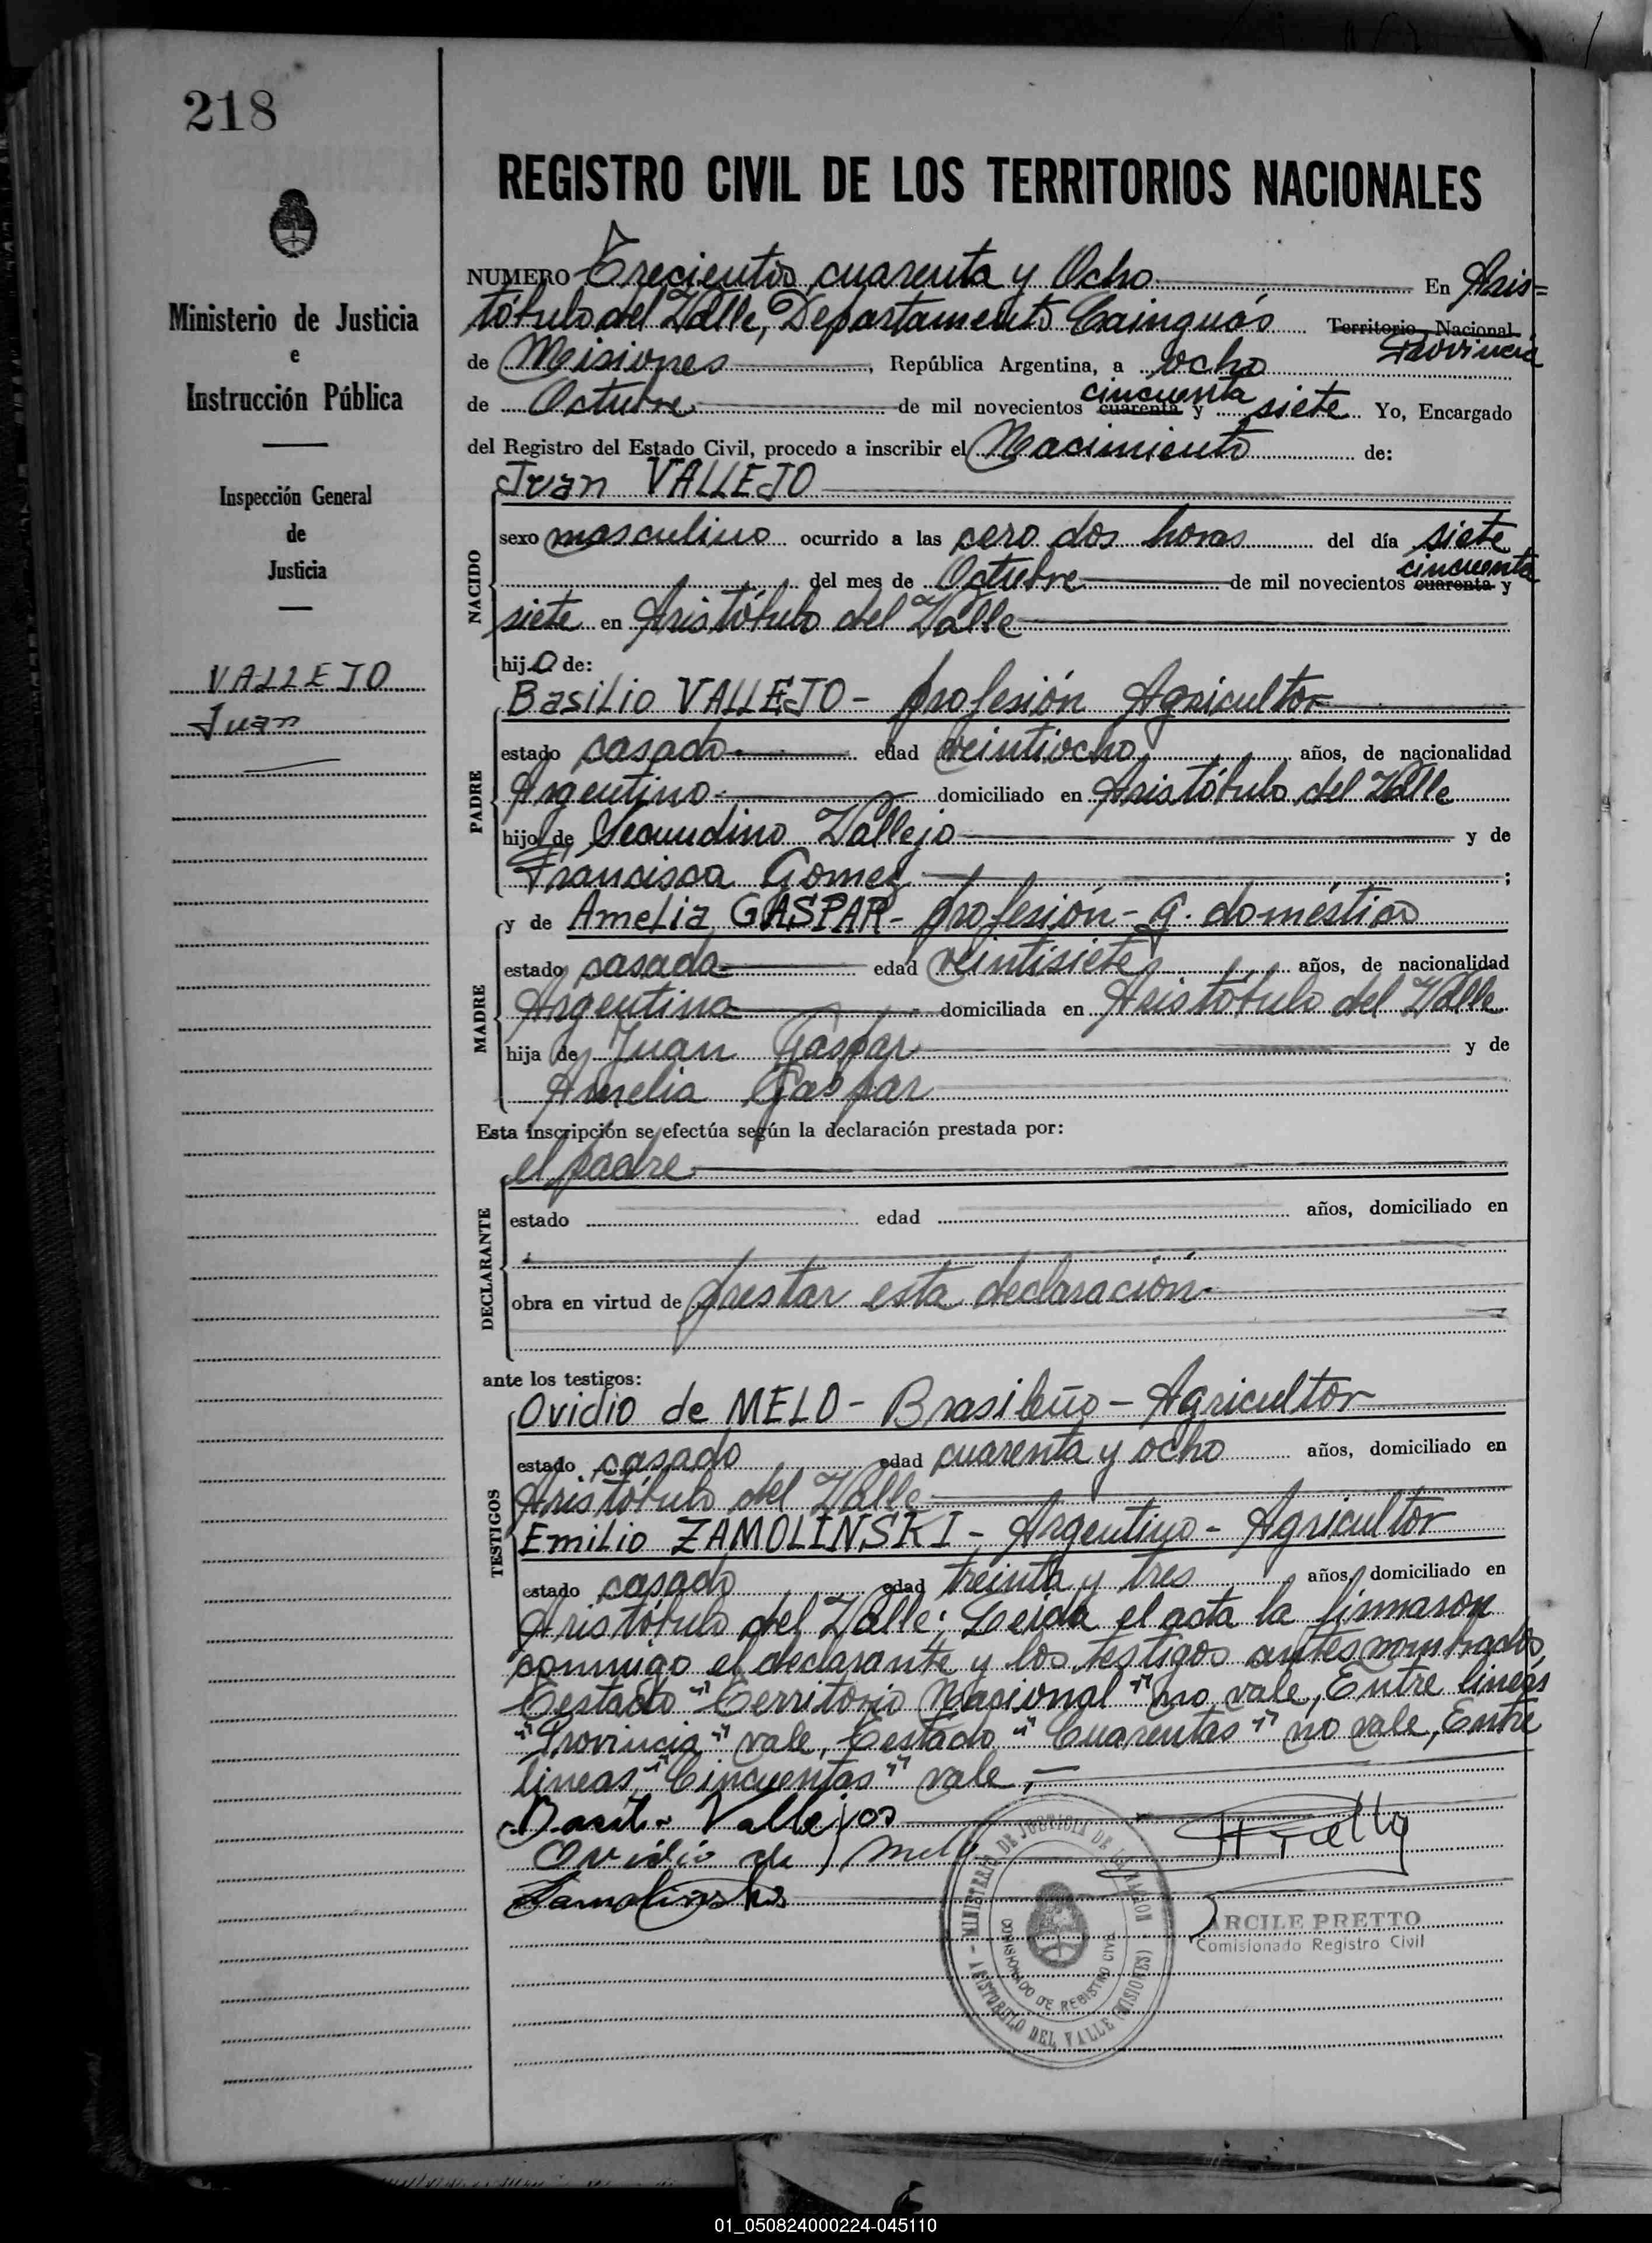 218
Ministerio de Justicia
e
Instrucción Pública
Inspección General
de
Justicia
VALLEJO
Juan
REGISTRO CIVIL DE LOS TERRITORIOS NACIONALES
NUMERO Trecientos cuarenta y Ocho En Aris=
tóbulo del Valle, Departamento Cainguás Territorio Nacional
Provincia
de Misiones, República Argentina, a ocho
cincuenta
de Octubre de mil novecientos cuarenta y siete Yo, Encargado
del Registro del Estado Civil, procedo a inscribir el Nacimiento de:
Juan VALLEJO
NACIDO
sexo masculino ocurrido a las cero dos horas del día siete
cincuenta
del mes de Octubre de mil novecientos cuarenta y
siete en Aristóbulo del Valle
hijo de:
PADRE
Basilio VALLEJO - profesión Agricultor
estado casado edad veintiocho años, de nacionalidad
Argentino domiciliado en Aristóbulo del Valle
hijo de Secundino Vallejo y de
Francisca Gomez;
MADRE
y de Amelia GASPAR - profesión - q. doméstico
estado casada edad veintisiete años, de nacionalidad
Argentina domiciliada en Aristóbulo del Valle
hija de Juan Gaspar y de
Amelia Gaspar
Esta inscripción se efectúa según la declaración prestada por:
DECLARANTE
el padre
estado edad años, domiciliado en
obra en virtud de prestar esta declaración.
ante los testigos:
TESTIGOS
Ovidio de MELO - Brasileño - Agricultor
estado casado edad cuarenta y ocho años, domiciliado en
Aristóbulo del Valle
Emilio ZAMOLINSKI - Argentino - Agricultor
estado casado edad treinta y tres años, domiciliado en
Aristóbulo del Valle; Leida el acta la firmaron
conmigo el declarante y los testigos antes nombrados,
Testado "Territorio Nacional" no vale, Entre lineas
"Provincia" vale, Testado "Cuarentas" no vale, Entre
lineas "Cincuentas" vale,-
Basilio Vallejos
Ovidio de Melo
Zamolinski
MINISTERIO DE JUSTICIA DE LA NACION
COMISIONADO DE REGISTRO CIVIL
ARISTOBULO DEL VALLE (MISIONES)
ARCILE PRETTO
Comisionado Registro Civil
01_050824000224-045110